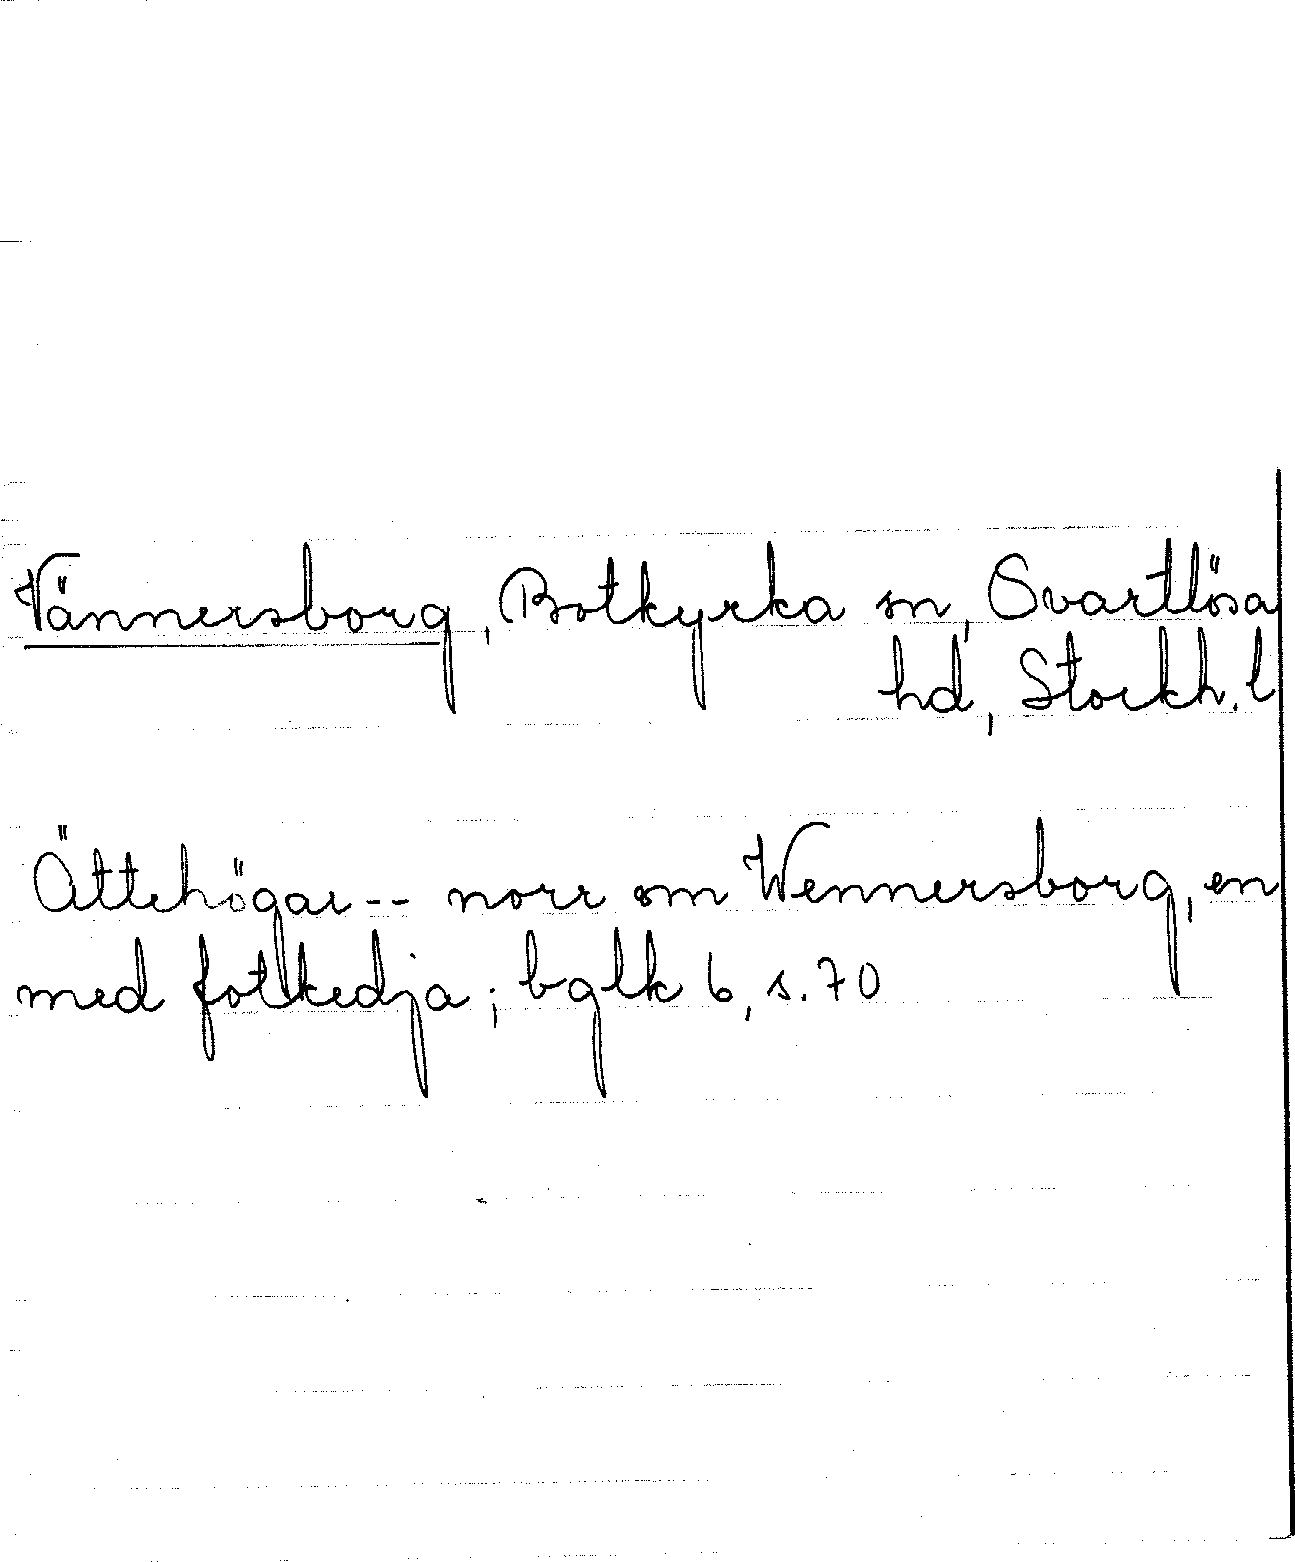 Vännersborg, Botkyrka sn, Svartlösa
hd, Stockh. l
Ättehögar -- norr om Wennersborg, en
med fotkedja; bglk 6, s. 70